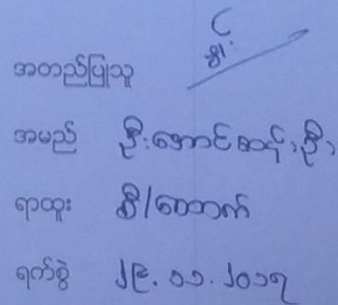 အတည်ပြုသူ
အမည် ဦးအောင်ဆန်းဦး
ရာထူး စီ/ထောက်
ရက်စွဲ ၂၉.၁၁.၂၀၁၇